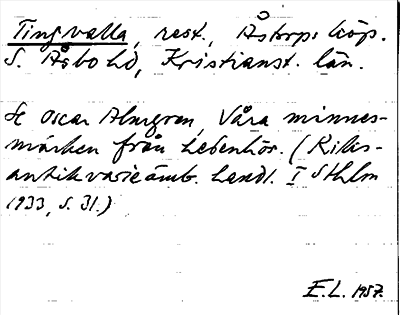 Tingvalla, rest., Åstorps köp.
S. Åsbo hd, Kristianst. län.
Se Oscar Almgren, Våra minnes-
märken från hedenhös. (Riks-
antikvarieämb. handl. I Sthlm
1933, s. 31.)
E.L. 1957.